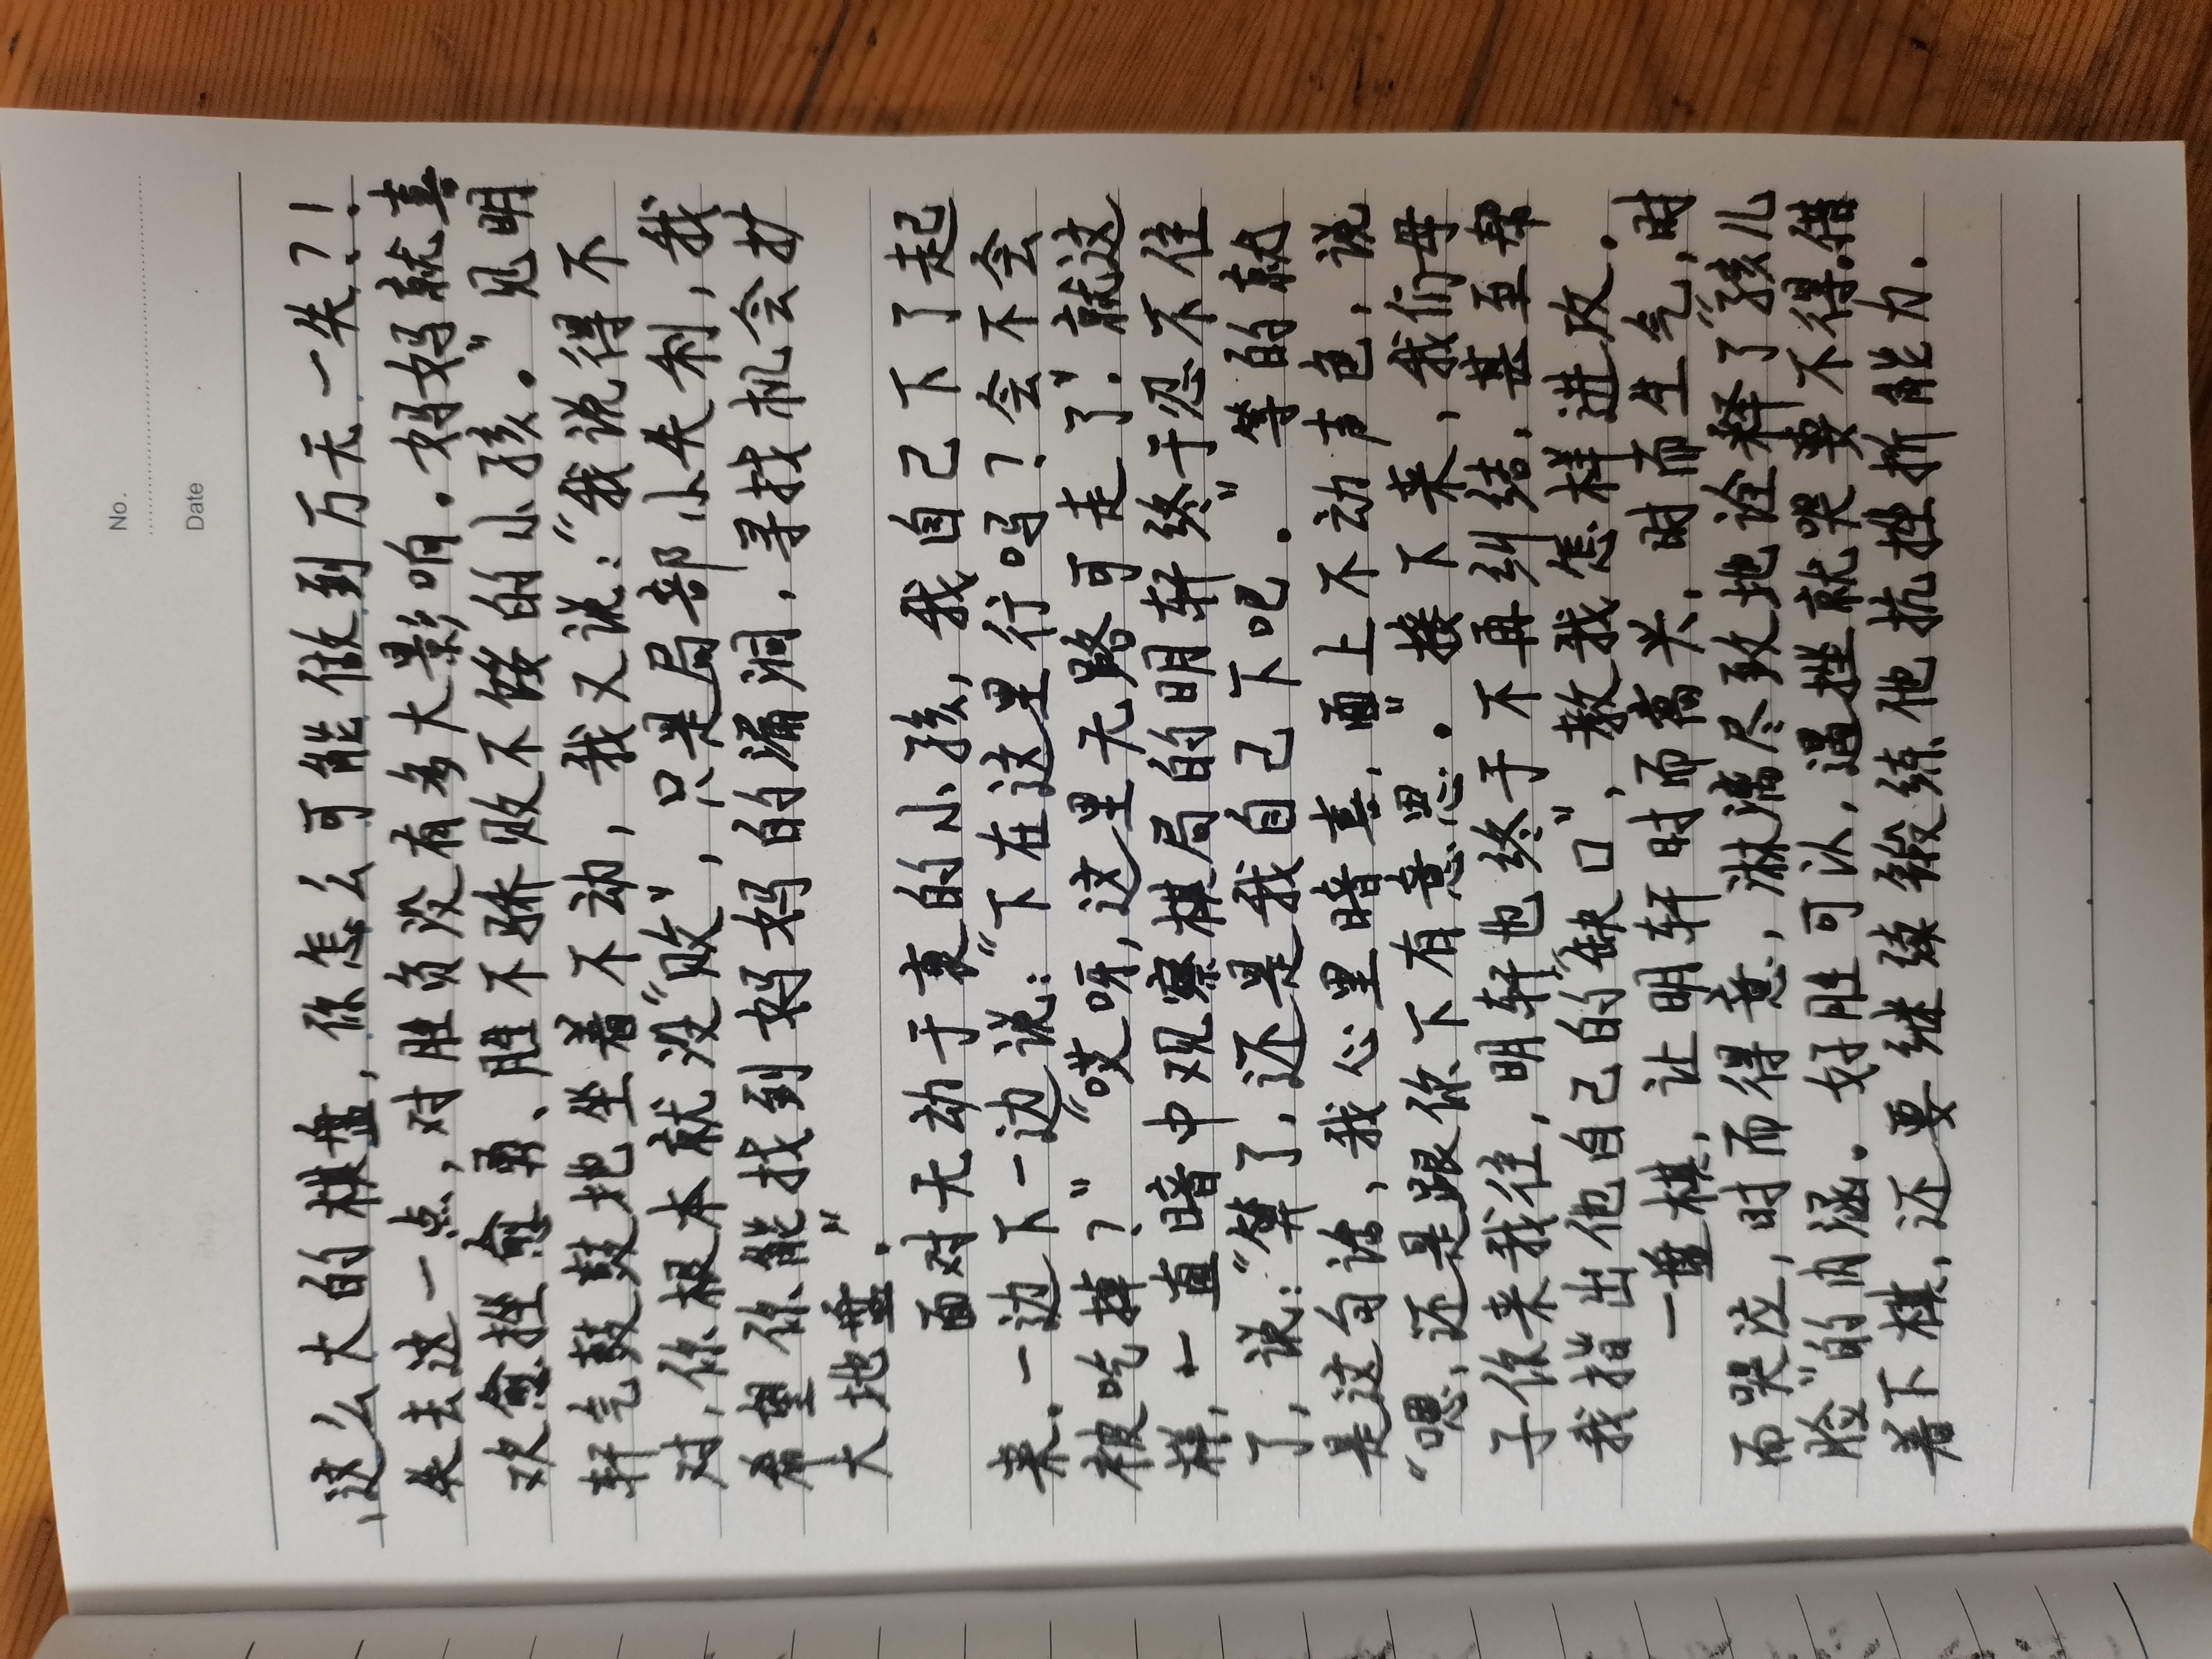 No.
Date
这么大的棋盘,你怎么可能做到万无一失?!
失去这一点,对胜负没有多大影响。妈妈就喜
欢愈挫愈勇、胜不骄败不馁的小孩。”见明
轩气鼓鼓地坐着不动,我又说:“我说得不
对,你根本就没“败”,只是局部小失利,我
希望你能找到妈妈的漏洞,寻找机会扩
大地盘。”
面对无动于衷的小孩,我自己下了起
来。一边下一边说:“下在这里行吗?会不会
被吃掉?”“哎呀,这里无路可走了。”就这
样,一直暗中观察棋局的明轩终于忍不住
了,说:“算了,还是我自己下吧。”等的就
是这句话,我心里暗喜,面上不动声色,说
“嗯,还是跟你下有意思。”接下来,我们母
子你来我往,明轩也终于不再纠结,甚至帮
我指出他自己的“缺口”,教我怎样进攻。
一盘棋,让明轩时而离失,时而生气,时
而哭泣,时而得意,淋漓尽致地诠释了“孩儿
脸”的内涵。好胜可认,遇挫就哭要不得。借
着下棋,还要继续锻练他抗挫折能力.